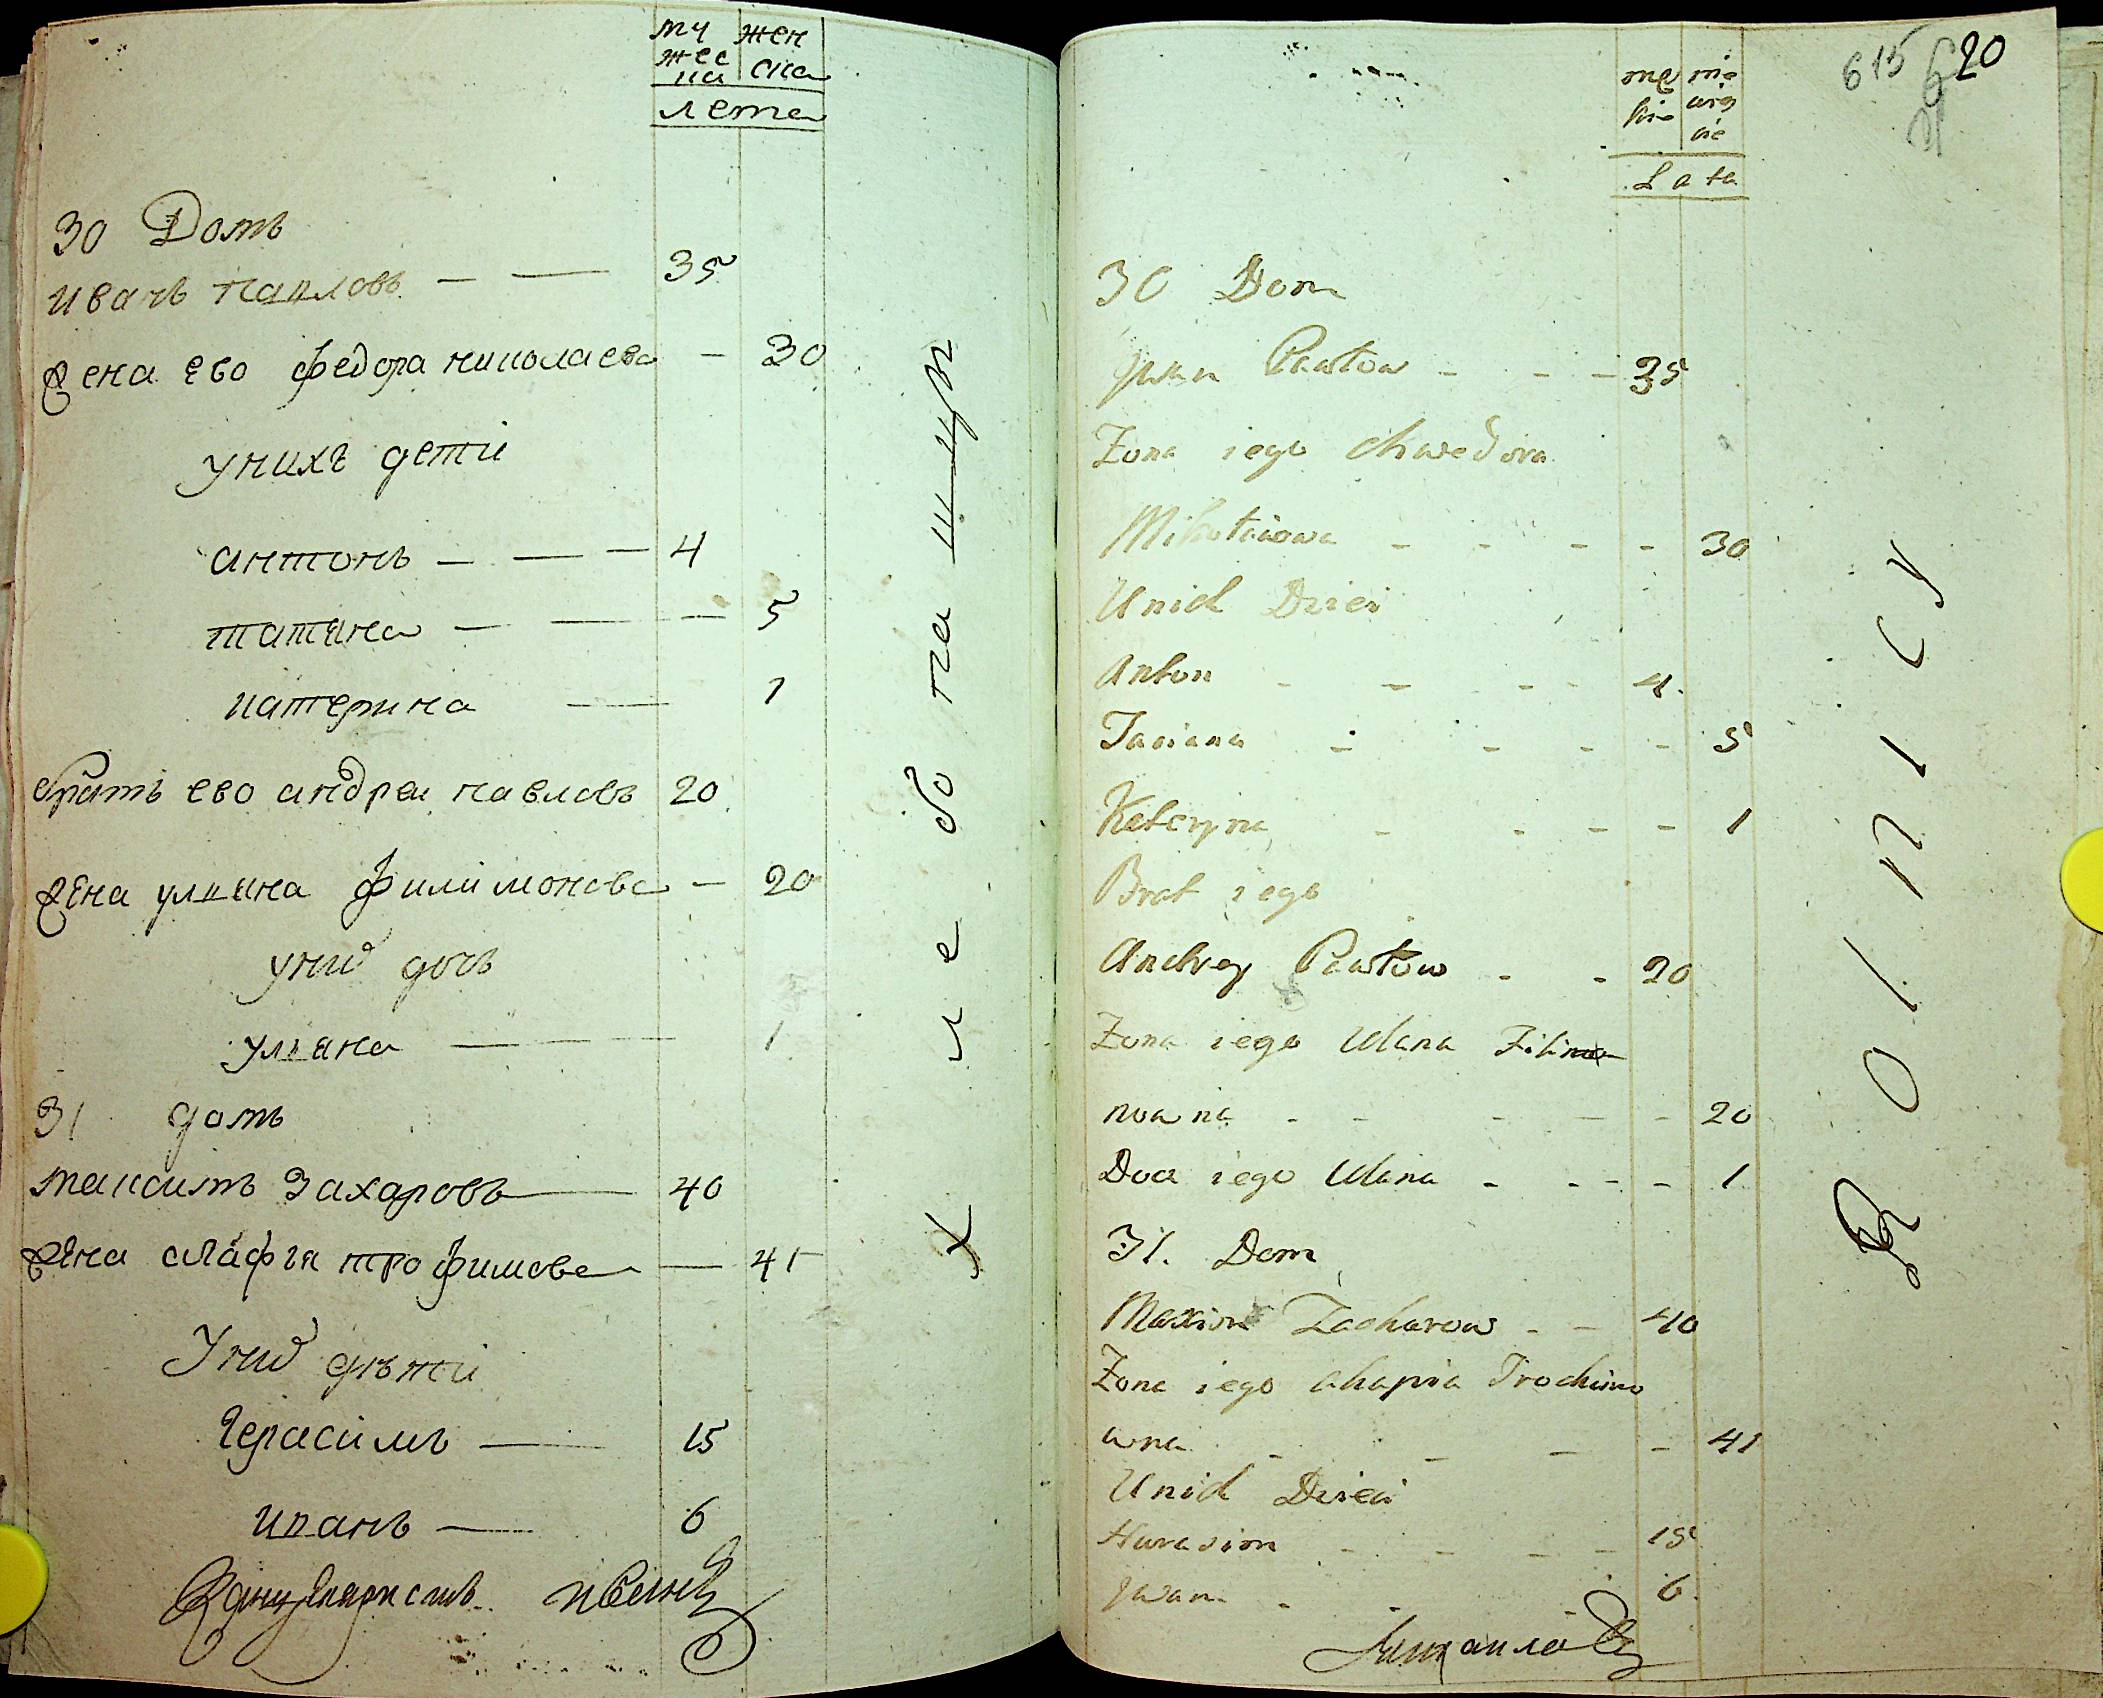 му жен
жес ска
ка
лета
30 Домъ
иванъ павловъ — — 35
жена ево федора николаева — 30
унихъ дети
антонъ — — — 4
татяна — — — 5
катерина — 1
братъ ево андреи павловъ 20
жена уляна филимонова — 20
унихъ дочь
уляна — — — 1
31 домъ
максимъ захаровъ — 40
жена агафия трофимова — 41
Унихъ дѣти
Герасимъ — 15
иванъ — 6
хлебопашцы
615 620
21
mę nie
skie wieś
cie
Lata
30 Dom
Jwan Pawłow - - - 35
Żona iego Chwedora
Mikołaiowa - - - - 30
Unich Dzieci
Anton - - - - 4.
Taciana - - - - 5
Keteryna - - - - 1
Brat iego
Andrey Pawłow - - 20
Żona iego Ulana Filimo
nowna - - - - - 20
Doca iego Ulana - - - - 1
31. Dom
Maxim Zacharow - - 40
Żona iego Ahapia Trochimo
wna - - - - 41
Unich Dzieci
Harasim - - - - 15
Jwan - - - 6.
Михаило
Rolnicy